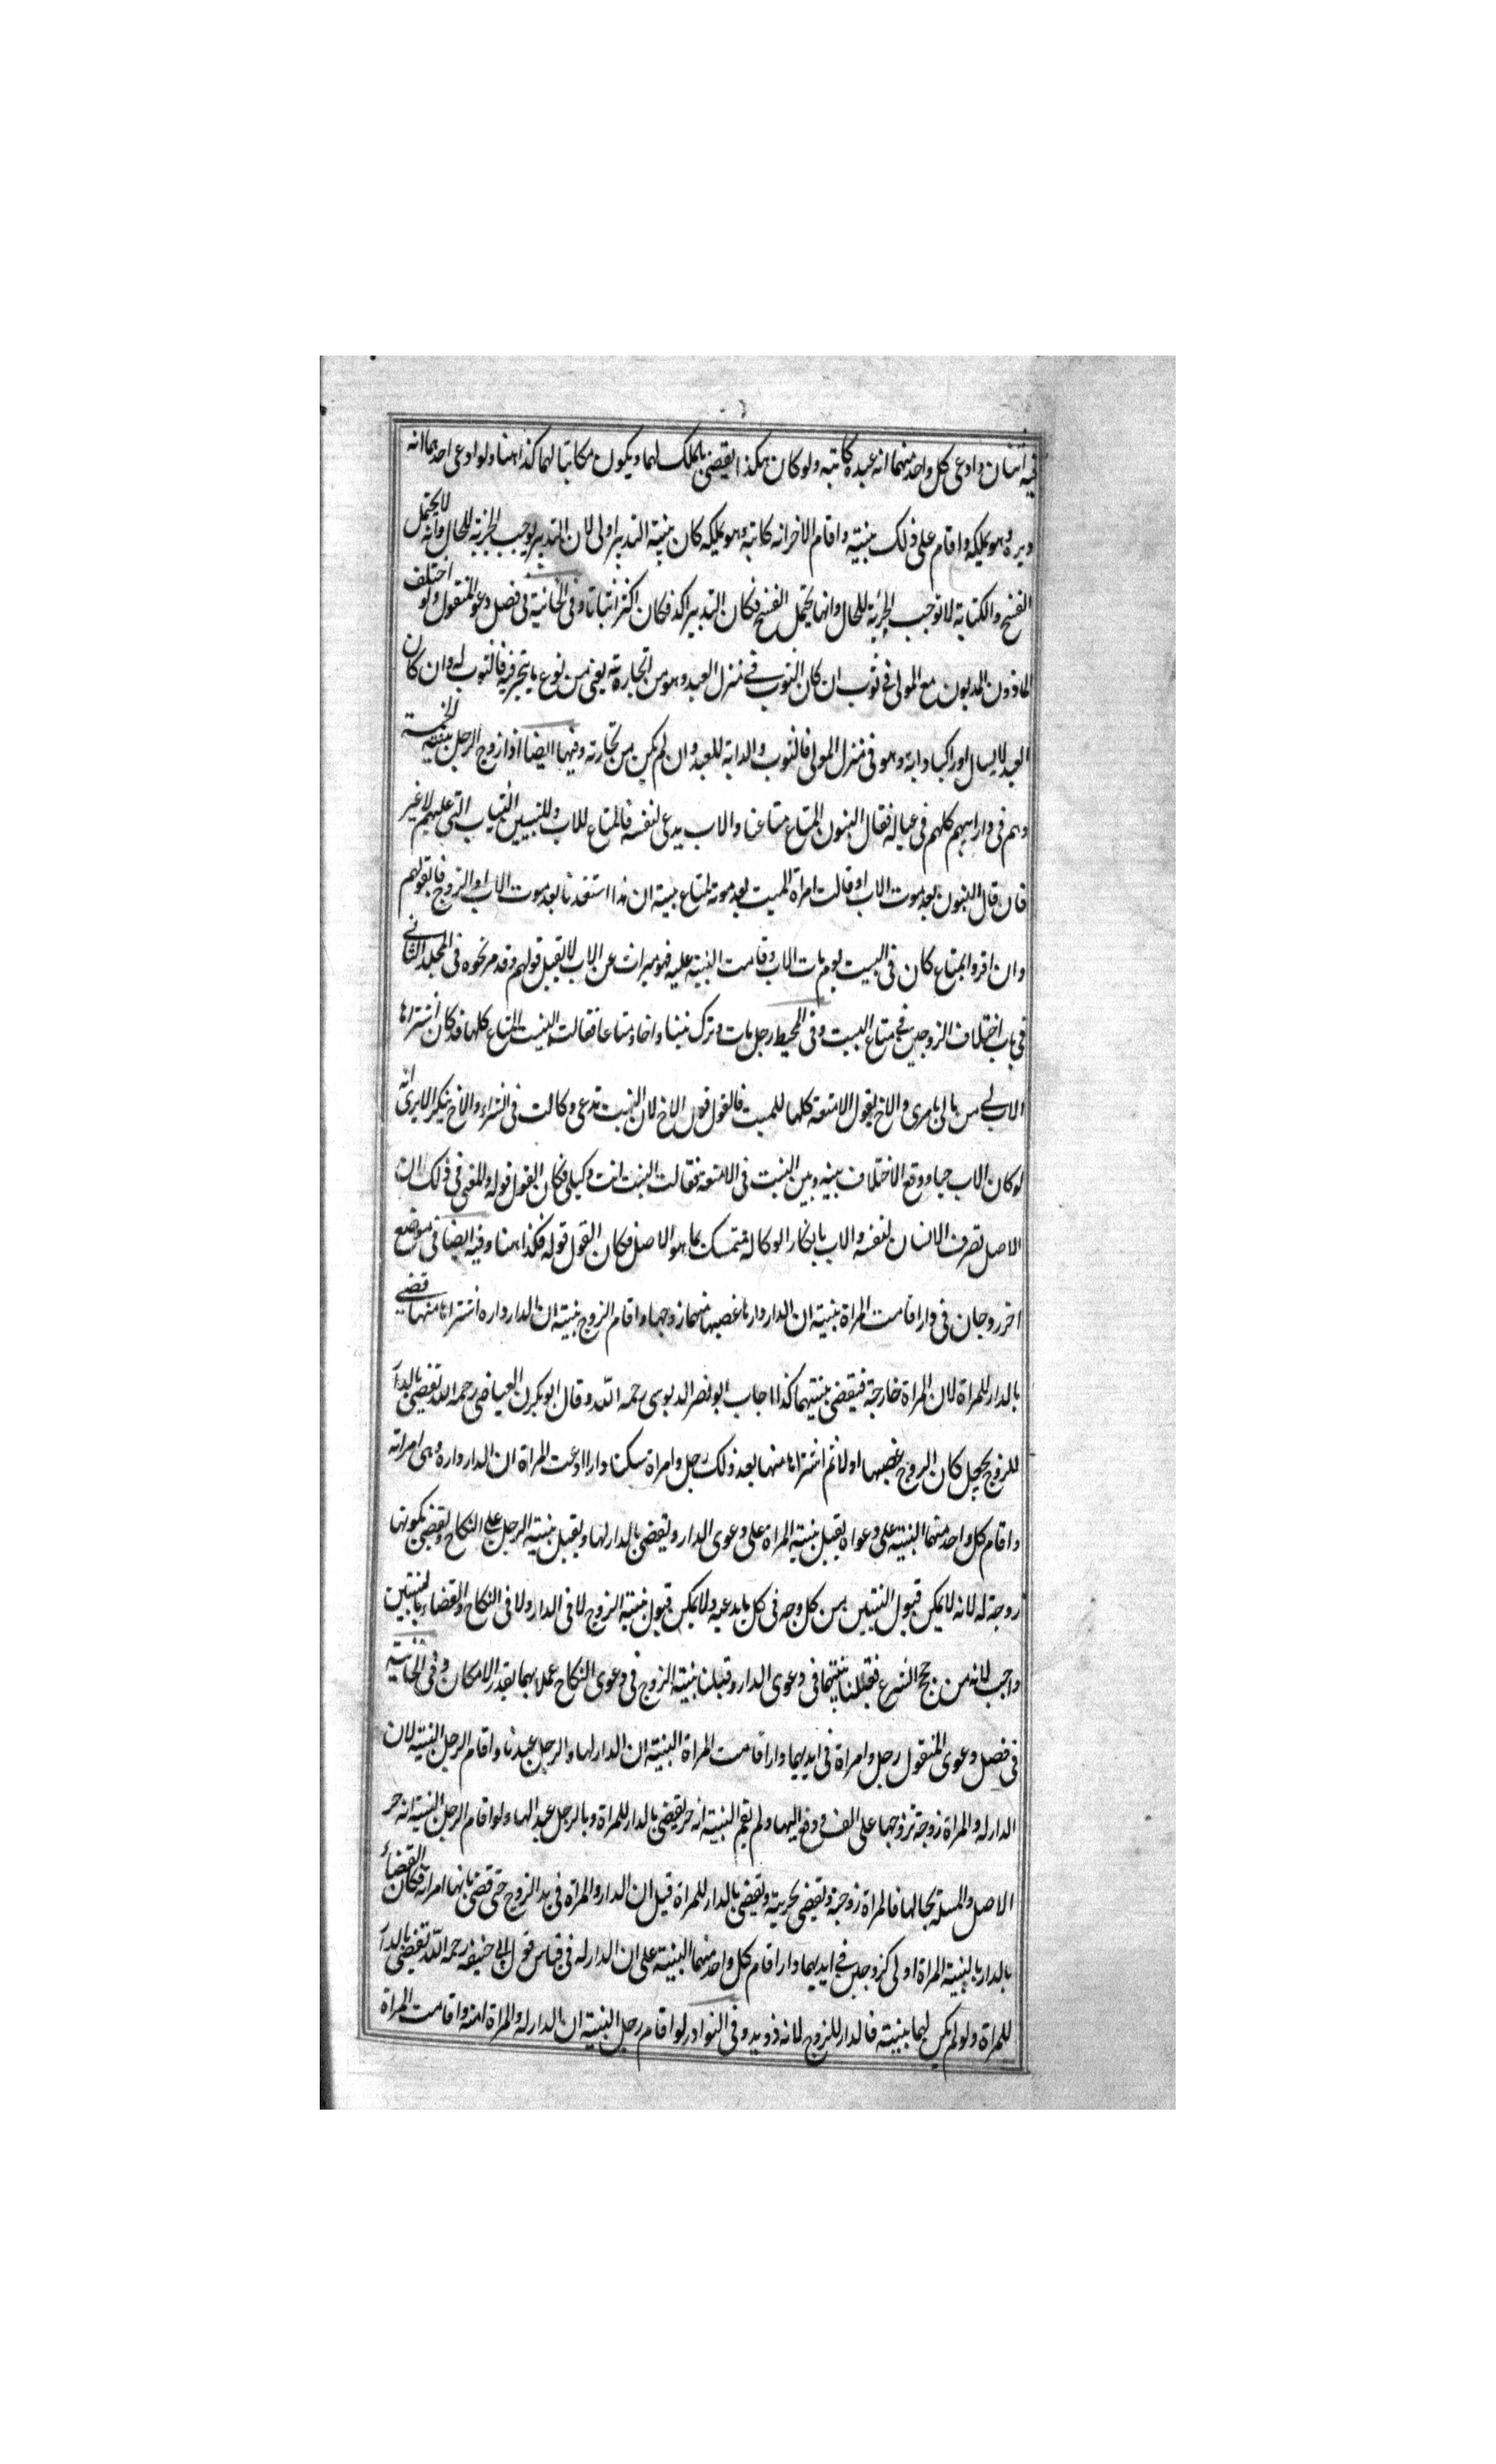 فيه اثنان وادعى كل واحد منهما انه عبده كاتبه ولو كان هكذا يقضى بالملك لهما ويكون مكاتبا لهما كذا هنا ولو ادعى احدهما انه
دبره وهو يملكه واقام على ذلك بينة واقام الاخر انه كاتبه وهو يملكه كان بينة التدبير اولى لان التدبير يوجب الحرية للحال وانه لا يحتمل
الفسخ والكتابة لا توجب الحرية للحال وانها يحتمل الفسخ فكان التدبير اكد فكان اكثر اثباتا وفى الخانية فى فصل دعوى المنقول ولو اختلف
الماذون المديون مع المولى فى ثوب ان كان الثوب فى منزل العبد وهو من تجارته يعنى من نوع ما يتجر فيه فالثوب له وان كان
العبد لابسا او راكبا دابة وهو فى منزل المولى فالثوب والدابة للعبد وان لم يكن من تجارته وفيها ايضا اذا زوج الرجل بنيه الخمسة
وهم فى دار ابيهم كلهم فى عياله فقال البنون المتاع متاعنا والاب يدعى لنفسه فالمتاع للاب وللبنين الثياب التى عليهم لا غير
فان قال البنون بعد موت الاب او قالت امراة الميت بعد موته لمتاع بيته ان هذا استفدنا بعد موت الاب او الزوج فالقولهم
وان اقروا بمتاع كان فى البيت يوم مات الاب وقامت البينة عليه فهو ميراث عن الاب لا يقبل قولهم وقد مر نحوه فى المجلد الثانى
فى باب اختلاف الزوجين فى متاع البيت وفى المحيط رجل مات وترك بنتا واخا ومتاعا فقالت البنت المتاع كلها قد كان اشتراها
الاب لى من مالى بامرى والاخ يقول الامتعة كلها للميت فالقول قول الاخ لان البنت تدعى وكالت فى الشراء والاخ ينكر الا يرى انه
لو كان الاب حيا ووقع الاختلاف بينه وبين البنت فى الامتعة فقالت البنت انت وكيلى فكان القول قوله والمعنى فى ذلك ان
الاصل تصرف الانسان لنفسه والاب بانكار الوكالة متمسك بما هو الاصل فكان القول قوله فكذا هنا وفيه ايضا فى موضع
اخر زوجان فى دار اقامت المراة بينة ان الدار دارها غصبها منها زوجها واقام الزوج بينة ان الدار داره اشتراها منها قضى
بالدار للمراة لان المراة خارجة فيقضى ببينتها كذا اجاب ابو نصر الدبوسى رحمه الله وقال ابو بكر العياضى رحمه الله تقضى بالدار
للزوج يجعل كان الزوج غصبها اولا ثم اشتراها منها بعد ذلك رجل وامراة سكنا دارا ادعت المراة ان الدار داره وهى امراته
واقام كل واحد منهما البينة على دعواه يقبل بينة المراة على دعوى الدار ويقضى بالدار لها ويقبل بينة الرجل على النكاح ويقضى بكونها
زوجة له لانه لا يمكن قبول البينتين من كل وجه فى كل ما يدعيه ولا يمكن قبول بينة الزوج لا فى الدار ولا فى النكاح والقضاء بالبينتين
واجب لانه من حجج الشرع فقبلنا بينتها فى دعوى الدار وقبلنا بينة الزوج فى دعوى النكاح عملا بهما بقدر الامكان وفى الخانية
فى فصل دعوى المنقول رجل وامراة فى ايديهما دار اقامت المراة البينة ان الدار لها والرجل عبدها واقام الرجل البينة لان
الدار له والمراة زوجة تزوجها على الف ودفع اليها ولم يقم البينة انه حر يقضى بالدار للمراة وبالرجل عبدا لها ولو اقام الرجل البينة انه حر
الاصل والمسئلة بحالها فالمراة زوجة ويقضى بحريته ويقضى بالدار للمراة قيل ان الدار والمراة فى يد الزوج حتى قضى بانها امراته فكان القضاء
بالدار بالبينة المراة اولى كزوجين فى ايديهما دار اقام كل واحد منهما البينة على ان الدار له فى قياس قول ابى حنيفه رحمه الله تقضى بالدار
للمراة ولو لم يكن لهما بينة فالدار للزوج لانه ذو يد وفى النوادر لو اقام رجل البينة ان الدار له والمراة امته واقامت المراة